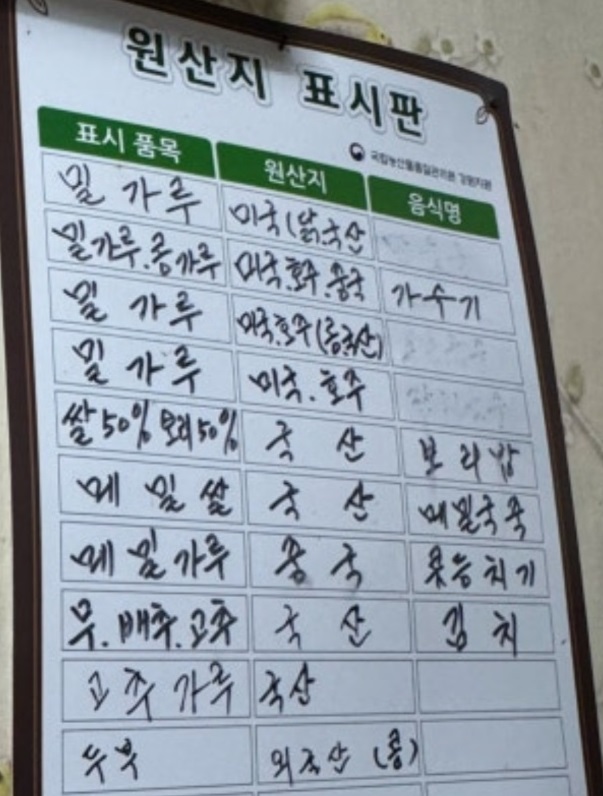 원산지 표시판
국립농산물품질관리원 강원지원
표시 품목 원산지 음식명
밀가루 미국(닭.국산
밀가루.콩가루 미국.호주.중국 가수기
밀가루 미국.호주(콩국산)
밀가루 미국.호주
쌀50% 보리50% 국산 보리밥
메밀쌀 국산 메밀국죽
메밀가루 중국 콧등치기
무.배추.고추 국산 김치
고추가루 국산
두부 외국산 (콩)